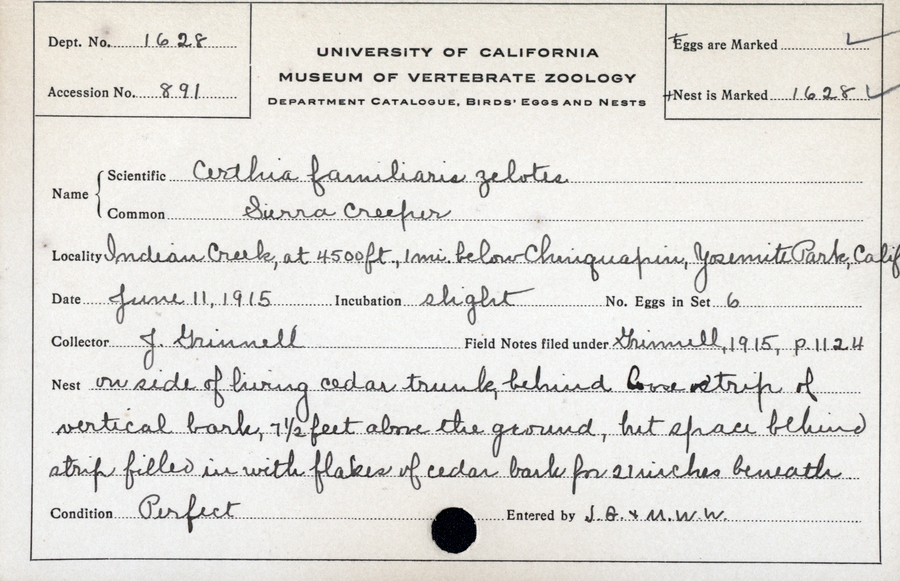 Dept. No. 1628
Accession No. 891
UNIVERSITY OF CALIFORNIA
MUSEUM OF VERTEBRATE ZOOLOGY
DEPARTMENT CATALOGUE, BIRDS' EGGS AND NESTS
Eggs are Marked ✓
Nest is Marked 1628 ✓
Name
Scientific Certhia familiaris zelotes
Common Sierra Creeper
Locality Indian Creek, at 4500 ft., 1 mi. below Chinquapin, Yosemite Park, Calif
Date June 11, 1915 Incubation slight No. Eggs in Set 6
Collector J. Grinnell Field Notes filed under Grinnell, 1915, p. 1124
Nest on side of living cedar trunk, behind loose strip of
vertical bark, 7½ feet above the ground, but space behind
strip filled in with flakes of cedar bark for 21 inches beneath
Condition Perfect Entered by J.G. & M.W.W.